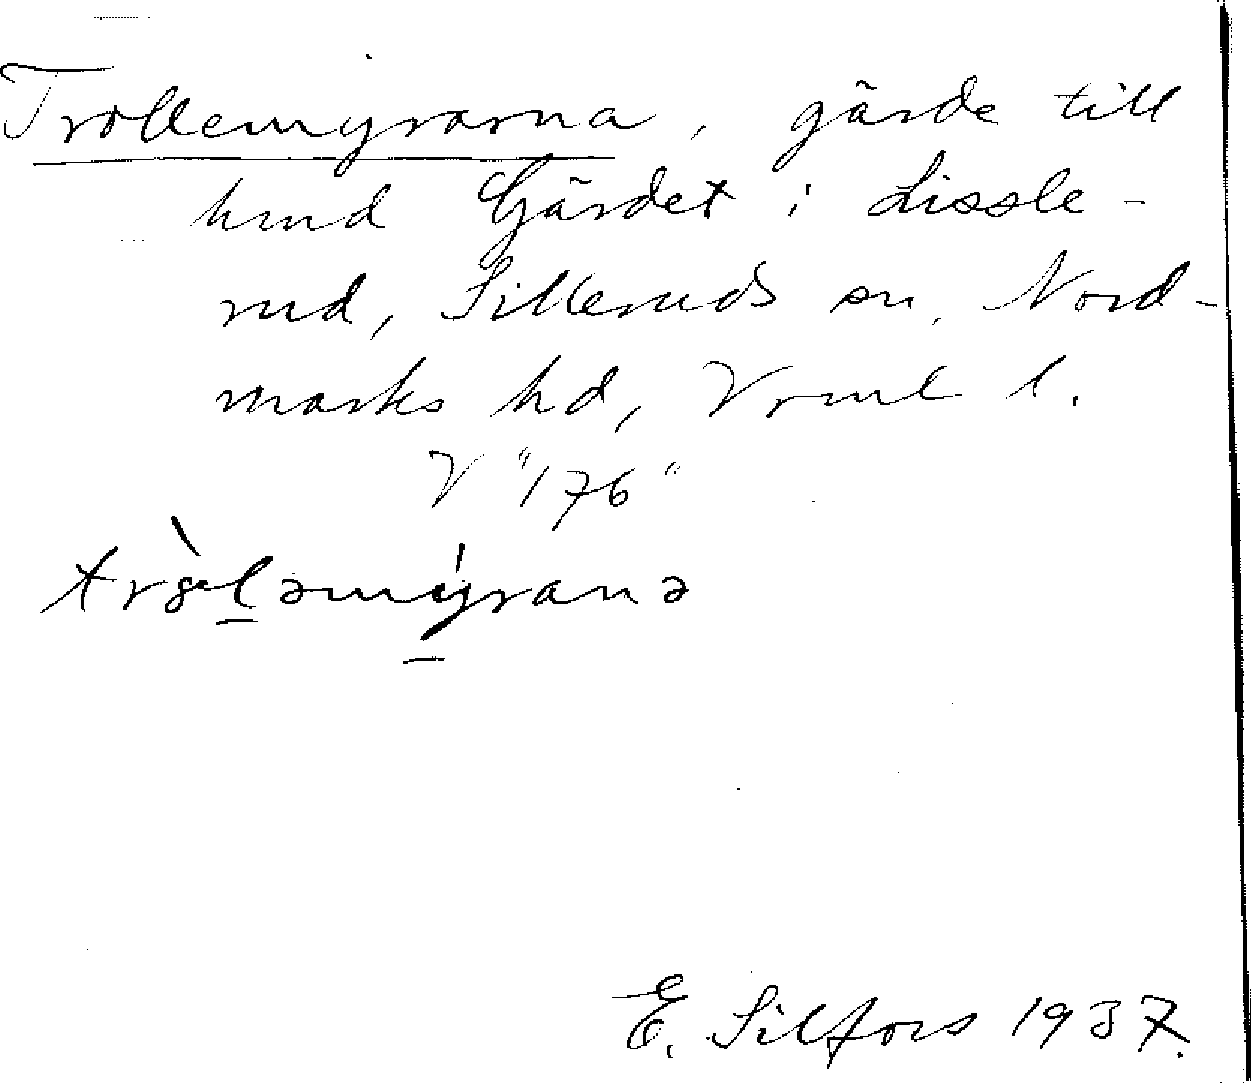 Trollemyrarna, gärde till
hmd Gärdet i Lissle-
rud, Silleruds sn, Nord-
marks hd, Vrml l.
V "176"
E. Silfors 1937.